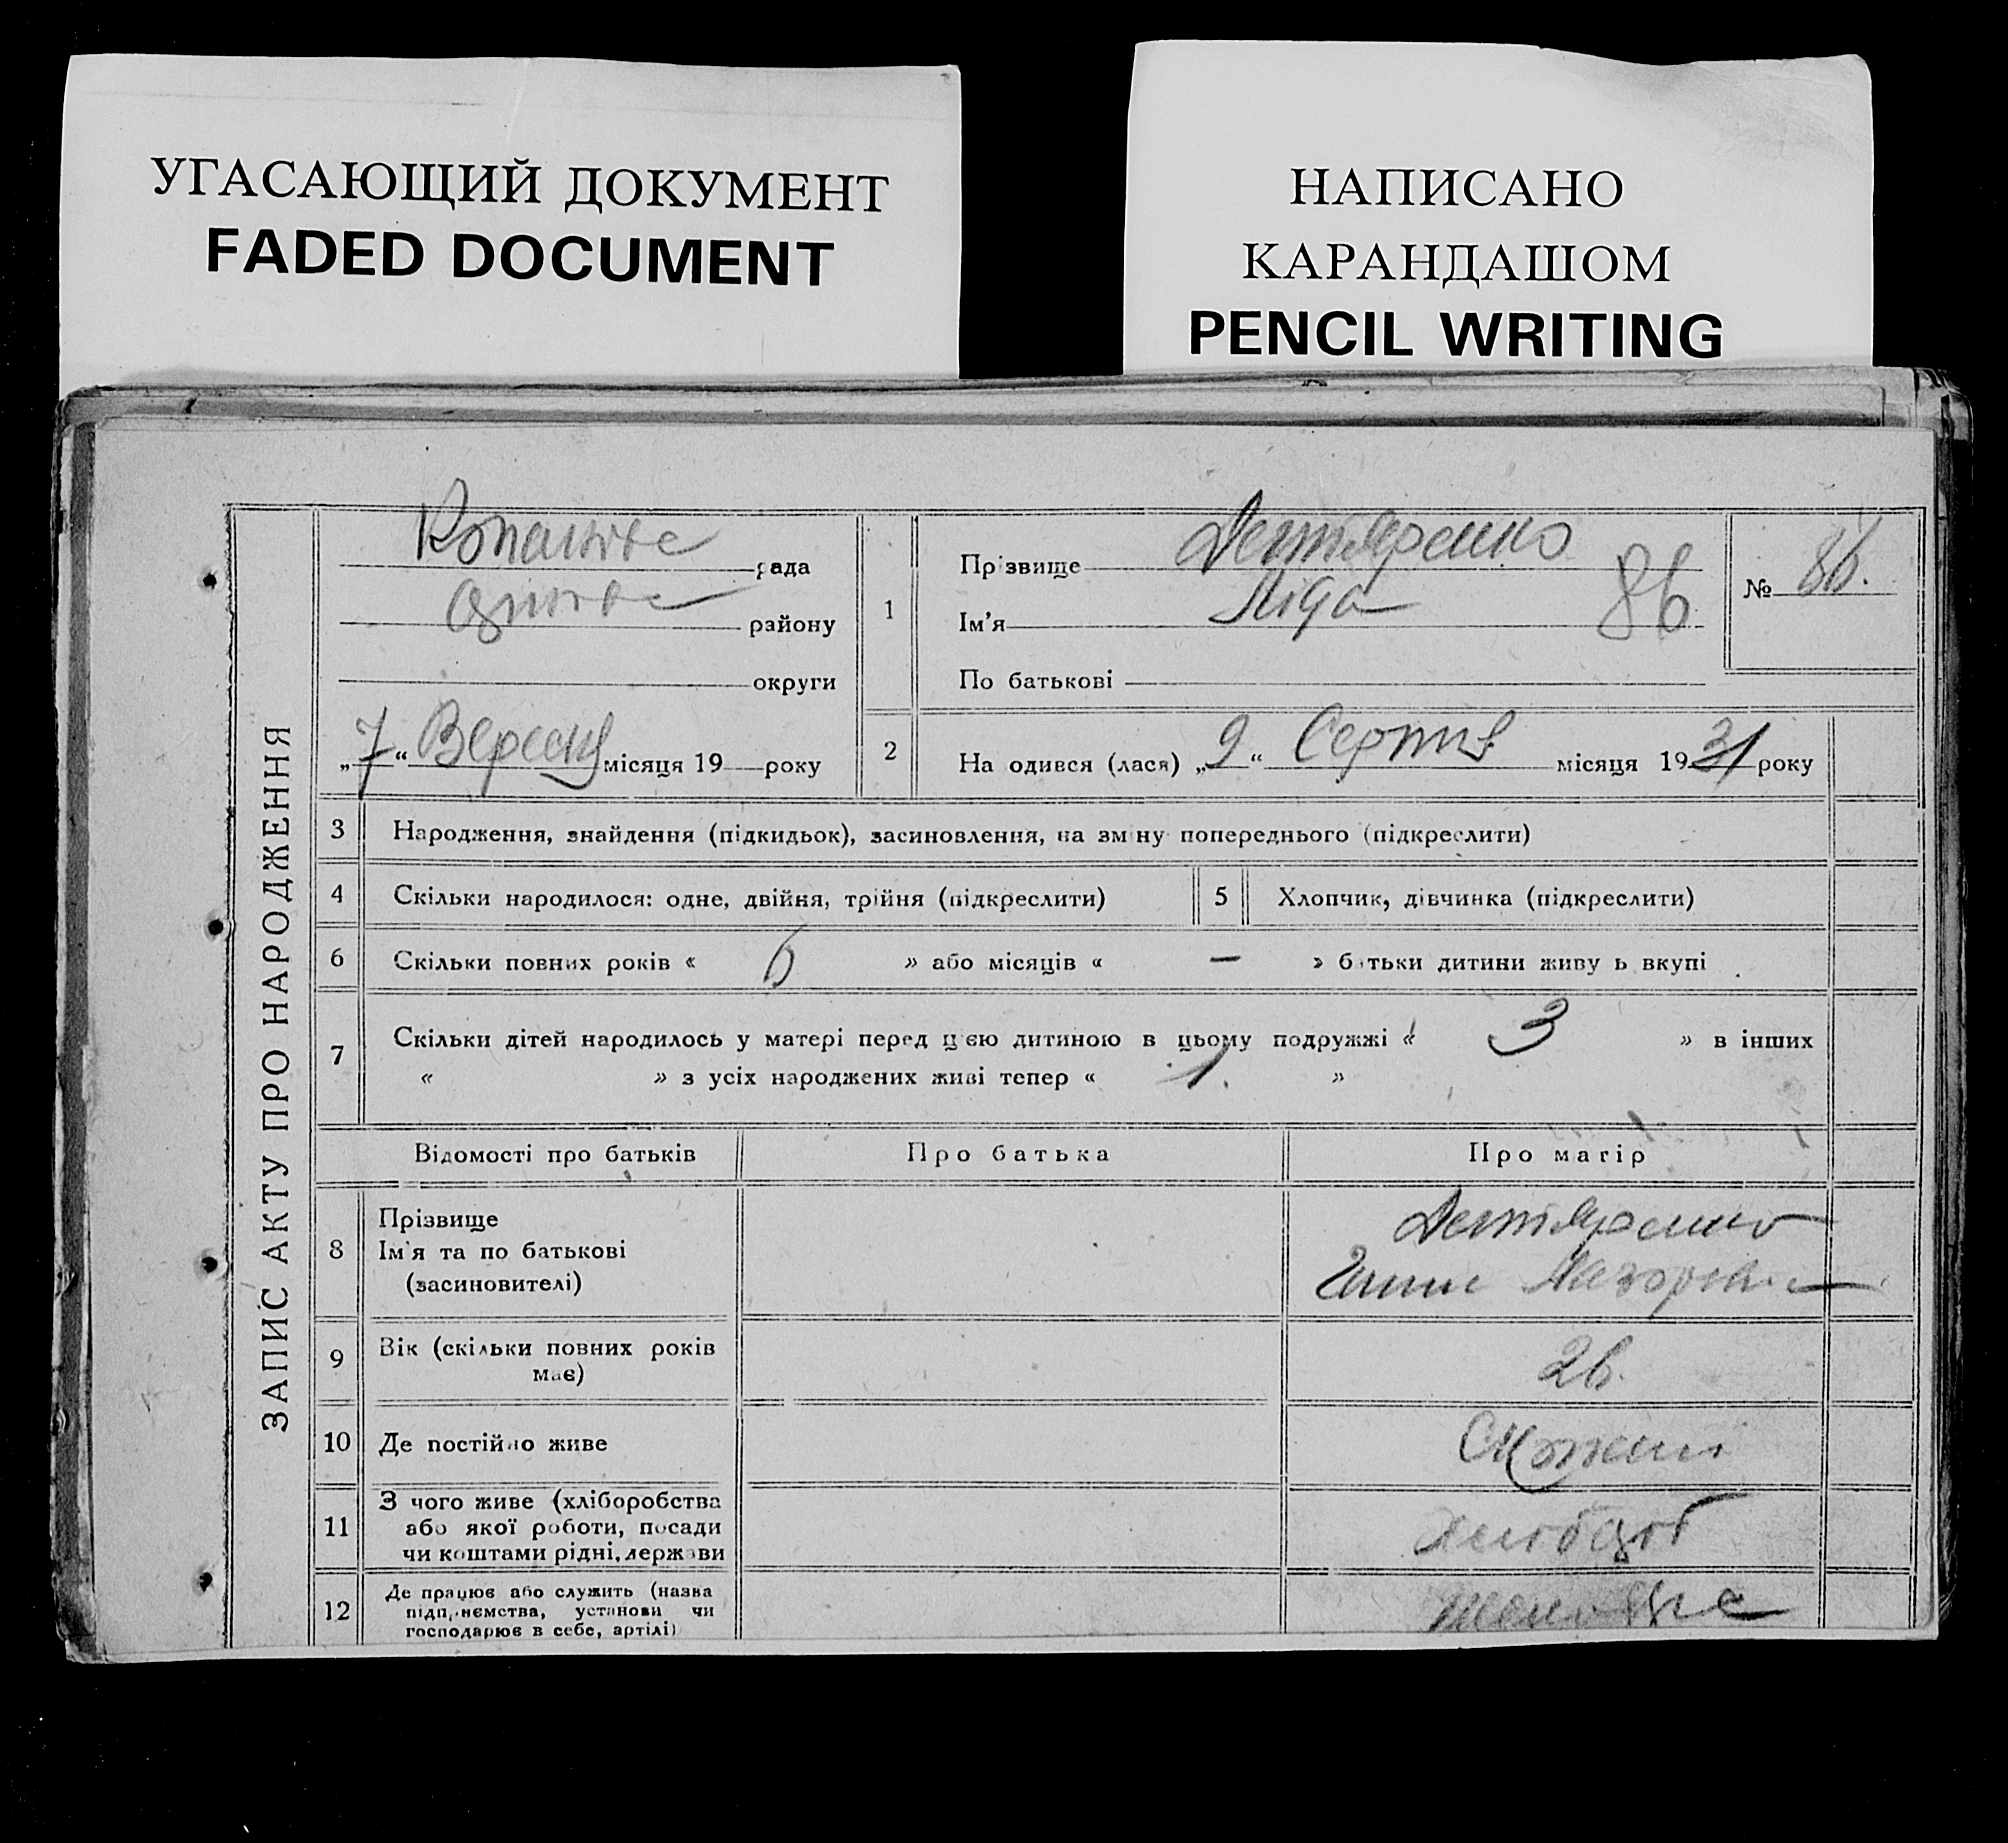 УГАСАЮЩИЙ ДОКУМЕНТ
FADED DOCUMENT
НАПИСАНО
КАРАНДАШОМ
PENCIL WRITING
ЗАПИС АКТУ ПРО НАРОДЖЕННЯ
рада
району
округи
„7“ Вересня місяця 19 року
1
Прізвище Дегтяренко
Ім'я Ліда 86
По батькові
№ 86.
2 На одився (лася) „9“ Серпня місяця 1931 року
3 Народження, знайдення (підкидьок), засиновлення, на зміну попереднього (підкреслити)
4 Скільки народилося: одне, двійня, трійня (підкреслити) 5 Хлопчик, дівчинка (підкреслити)
6 Скільки повних років « 6 » або місяців « — » батьки дитини живу ь вкупі
7 Скільки дітей народилось у матері перед цією дитиною в цьому подружжі « 3 » в інших
« » з усіх народжених живі тепер « 1. »
Відомості про батьків Про батька Про матір
8 Прізвище
Ім'я та по батькові
(засиновителі)
Дегтяренко
Ганна
9 Вік (скільки повних років
має)
26.
10 Де постійно живе
11 З чого живе (хліборобства
або якої роботи, посади
чи коштами рідні, держави
12 Де працює або служить (назва
підприємства, установи чи
господарює в себе, артілі)